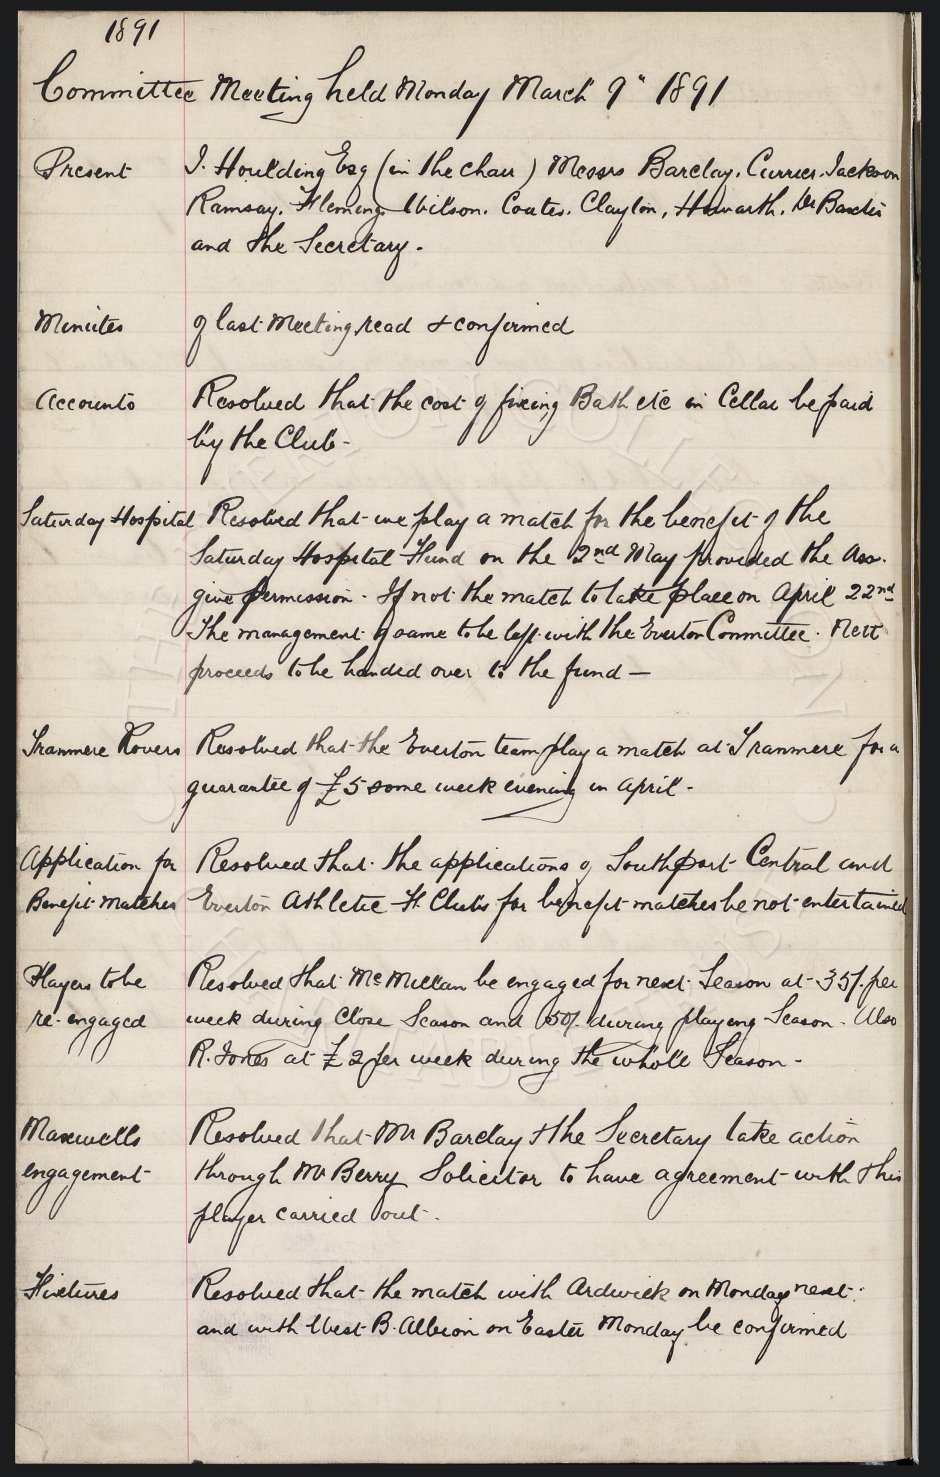 1891
Committee Meeting held Monday March 9" 1891
Present J. Houlding Esq (in the chair) Messrs Barclay. Currier. Jackson
Ramsay. Fleming. Wilson. Coates. Clayton, Howarth. Dr Baxter
and the Secretary.
Minutes of last Meeting read & confirmed
Accounts Resolved that the cost of fixing Bath etc in Cellar be paid
by the Club-
Saturday Hospital Resolved that we play a match for the benefit of the
Saturday Hospital Fund on the 2nd May provided the Ass.
give permission. If not the match to take place on April 22nd
The management of same to be left with the Everton Committee. Nett
proceeds to be handed over to the fund —
Tranmere Rovers Resolved that the Everton team play a match at Tranmere for a
guarantee of £5 some week evening in April.
Application for Resolved that the applications of Southport Central and
Benefit Matches Everton Athletic Ft. Clubs for benefit matches be not entertained
Players to be Resolved that McMillan be engaged for next Season at 35/. per
re-engaged week during Close Season and 50/. during playing Season. Also
R. Jones at £2 per week during the whole Season.
Maxwells Resolved that Mr Barclay & the Secretary take action
engagement through Mr Berry Solicitor to have agreement with this
player carried out.
Fixtures Resolved that the match with Ardwick on Monday next.
and with West B. Albion on Easter Monday be confirmed